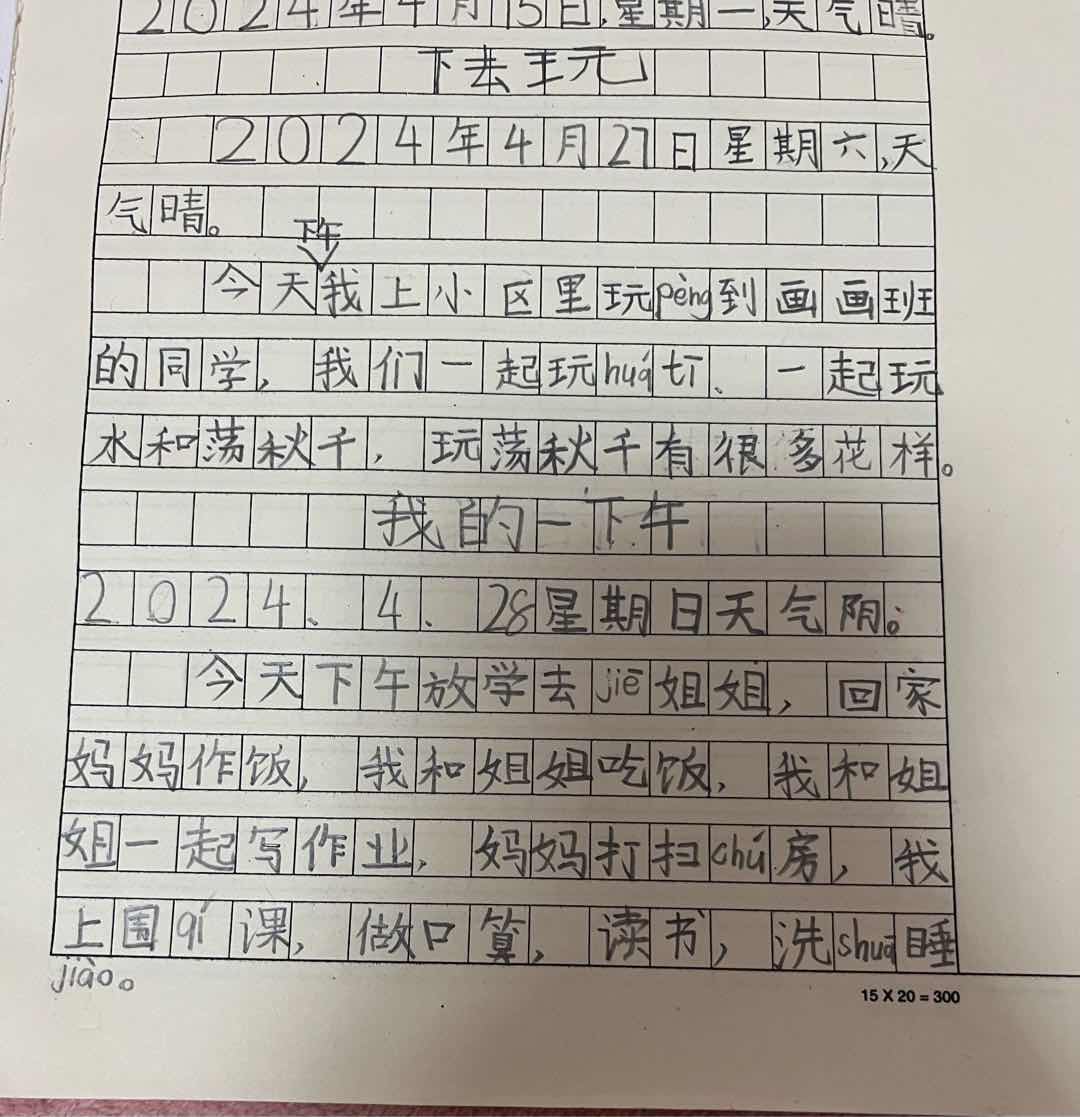 2024年4月15日,星期一,天气晴。
下去玩
2024年4月27日星期六,天
气晴。
下午
今天我上小区里玩pèng到画画班
的同学,我们一起玩huá tī、一起玩
水和荡秋千,玩荡秋千有很多花样。
我的一下午
2024、4、28星期日天气阴。
今天下午放学去jiē姐姐,回家
妈妈作饭,我和姐姐吃饭,我和姐
姐一起写作业,妈妈打扫chú房,我
上围qí课,做口算,读书,洗shuā睡
jiào。
15 X 20 = 300